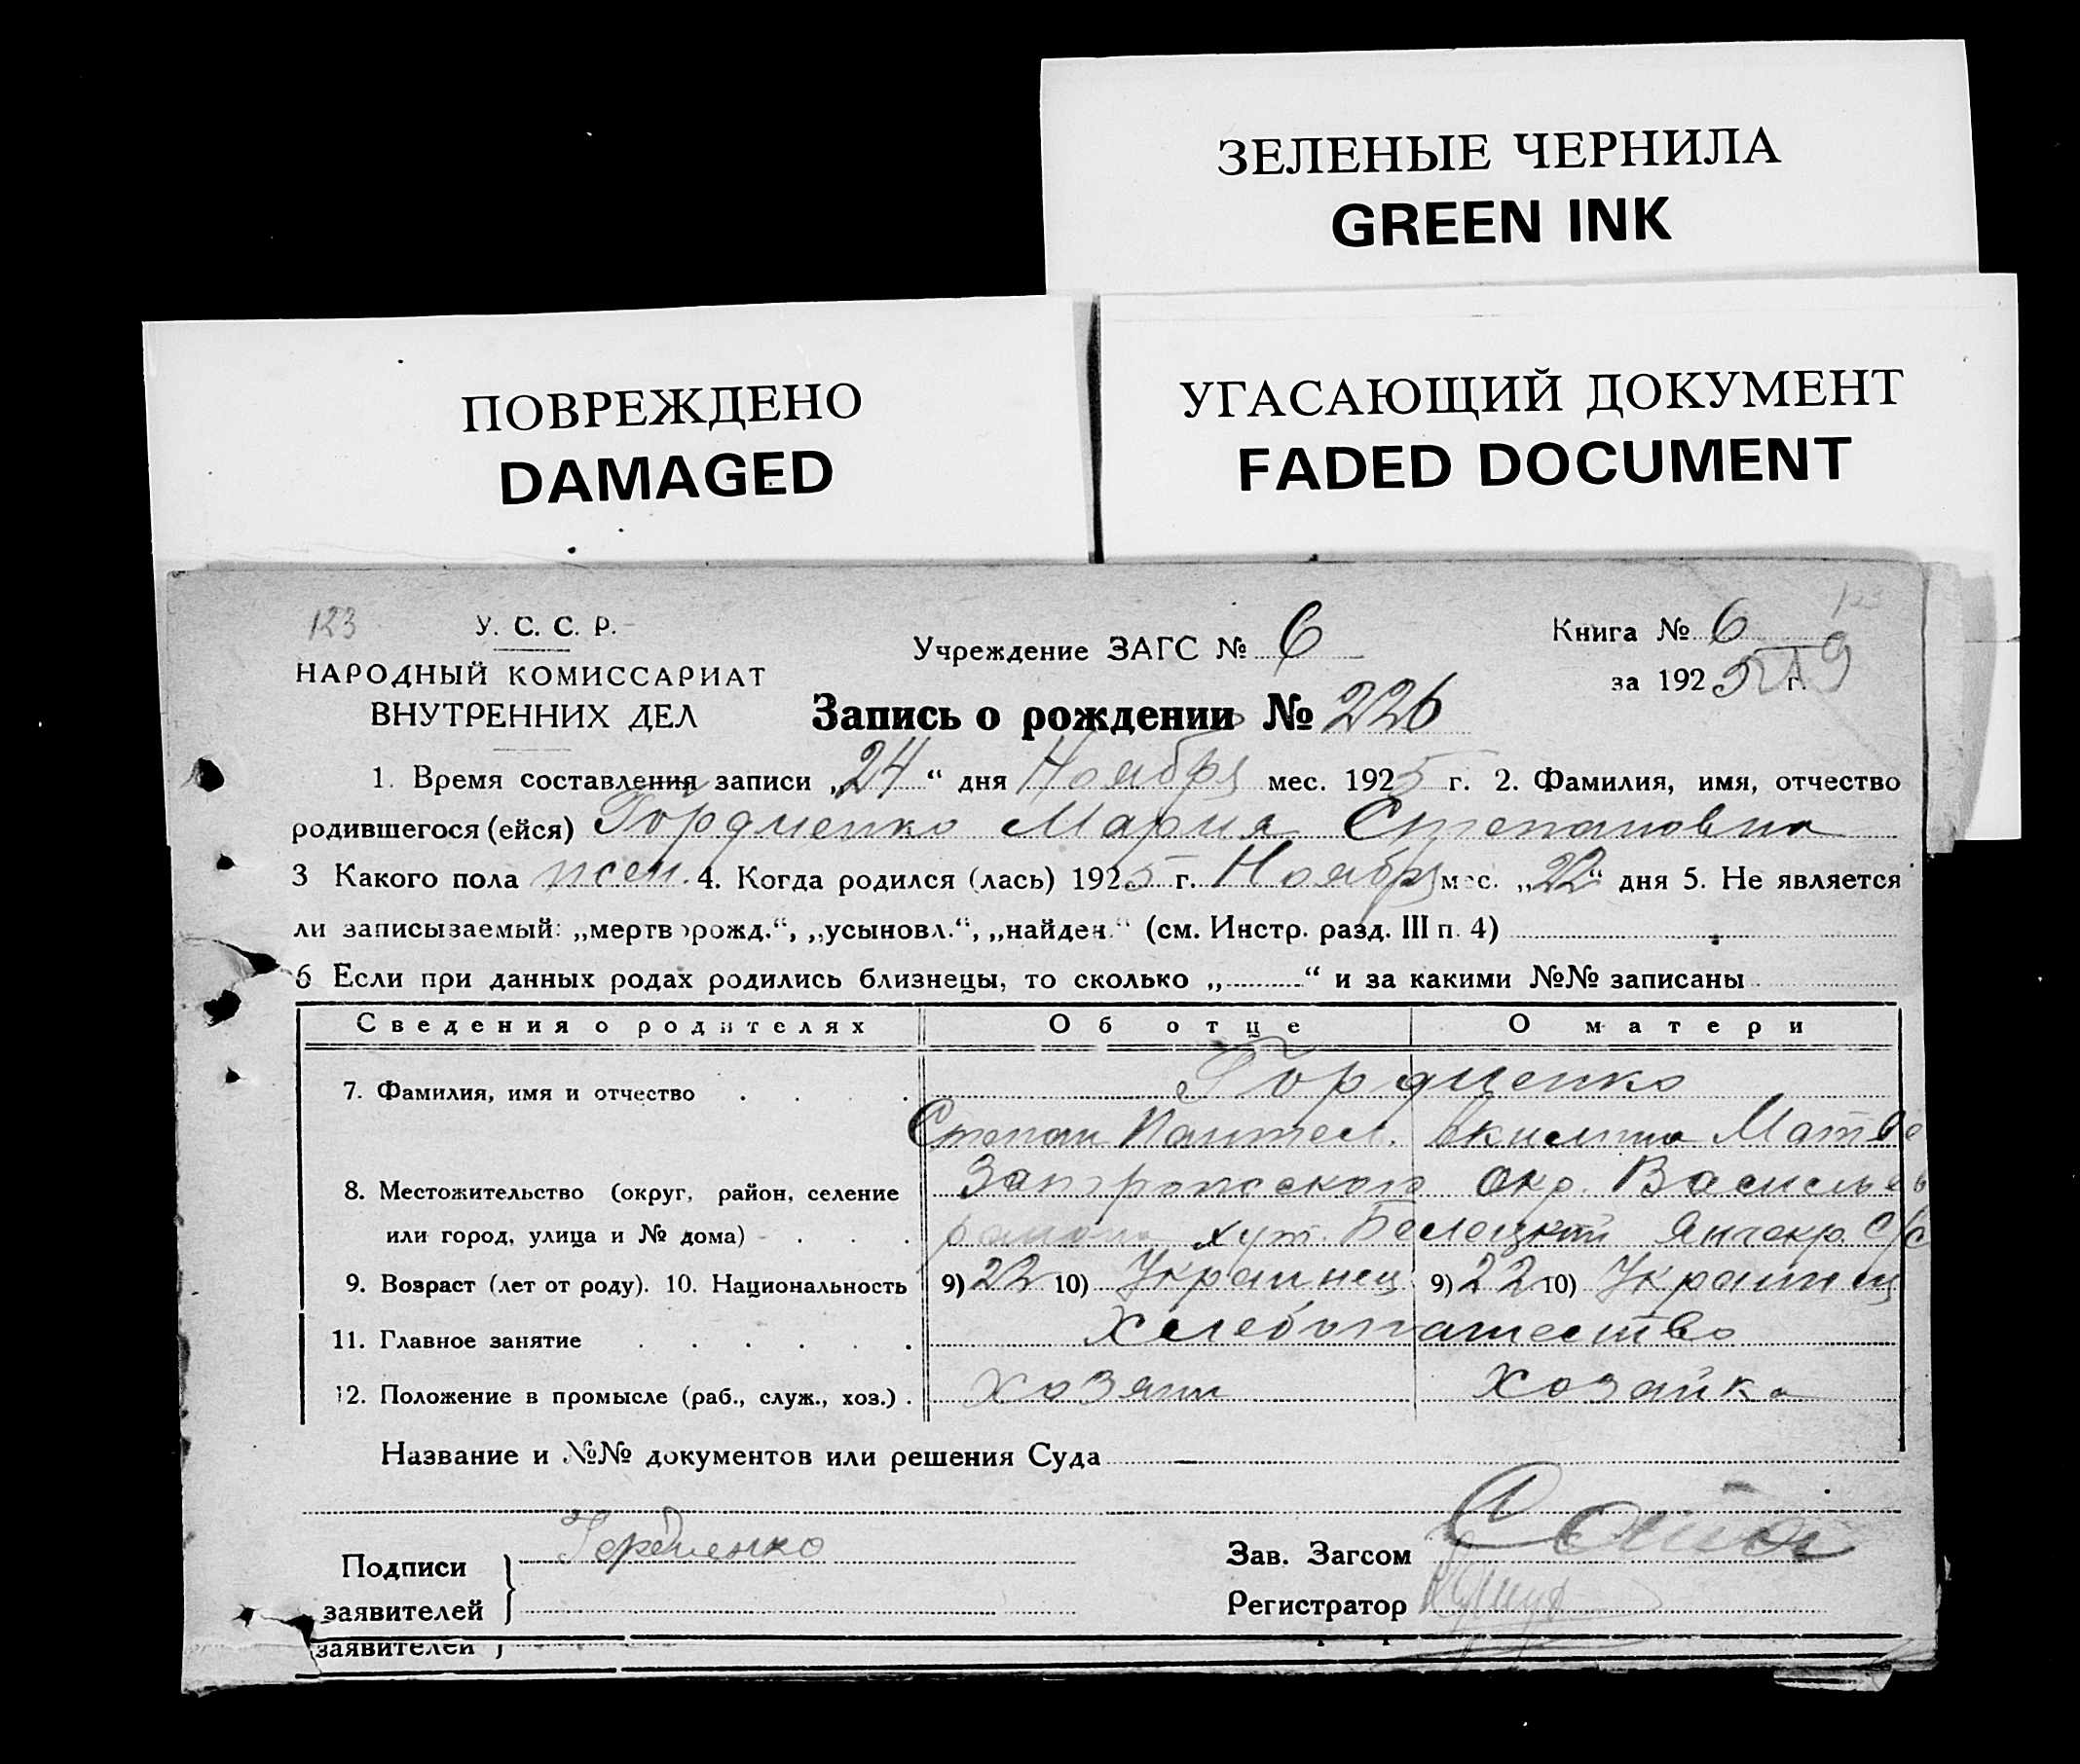 ЗЕЛЕНЫЕ ЧЕРНИЛА
GREEN INK
ПОВРЕЖДЕНО
DAMAGED
УГАСАЮЩИЙ ДОКУМЕНТ
FADED DOCUMENT
123
У. С. С. Р.
НАРОДНЫЙ КОМИССАРИАТ
ВНУТРЕННИХ ДЕЛ
Учреждение ЗАГС № 6
Запись о рождении № 226
Книга № 6
за 1925 г.
1. Время составления записи „24“ дня Ноября мес. 1925 г. 2. Фамилия, имя, отчество
родившегося (ейся) Гордиенко Мария Степановна
3 Какого пола жен. 4. Когда родился (лась) 1925 г. Ноября мес. „22“ дня 5. Не является
ли записываемый: „мертворожд.“, „усыновл.“, „найден.“ (см. Инстр. разд. III п. 4)
6 Если при данных родах родились близнецы, то сколько „ “ и за какими №№ записаны
Сведения о родителях Об отце О матери
7. Фамилия, имя и отчество Гордиенко
Степан Пантел. Акилина Матве
8. Местожительство (округ, район, селение Запорожского окр. Васильев
или город, улица и № дома) района хут. Белецкий Янчекр. С/С
9. Возраст (лет от роду). 10. Национальность 9) 22 10) Украинец 9) 22 10) Украинец
11. Главное занятие Хлебопашество
12. Положение в промысле (раб., служ., хоз.) хозяин хозяйка
Название и №№ документов или решения Суда
Подписи
заявителей
Гордиенко
Зав. Загсом
Регистратор
заявителей